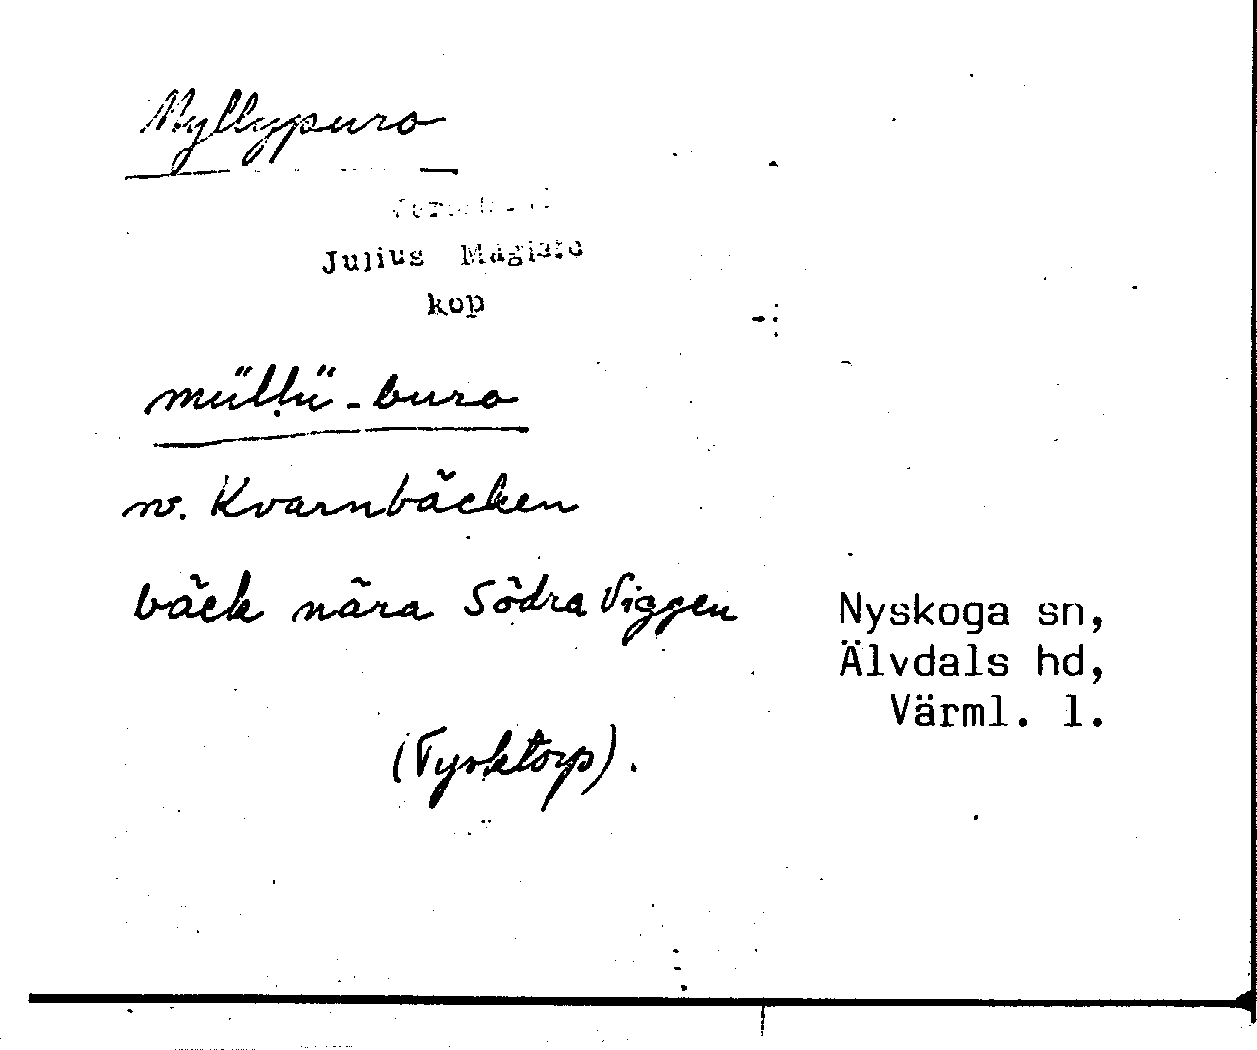 Myllypuro
Julius Mägiste
kop
müllü-buro
rv. Kvarnbäcken
bäck nära Södra Viggen
Nyskoga sn,
Älvdals hd,
Värml. l.
(Tysktorp).